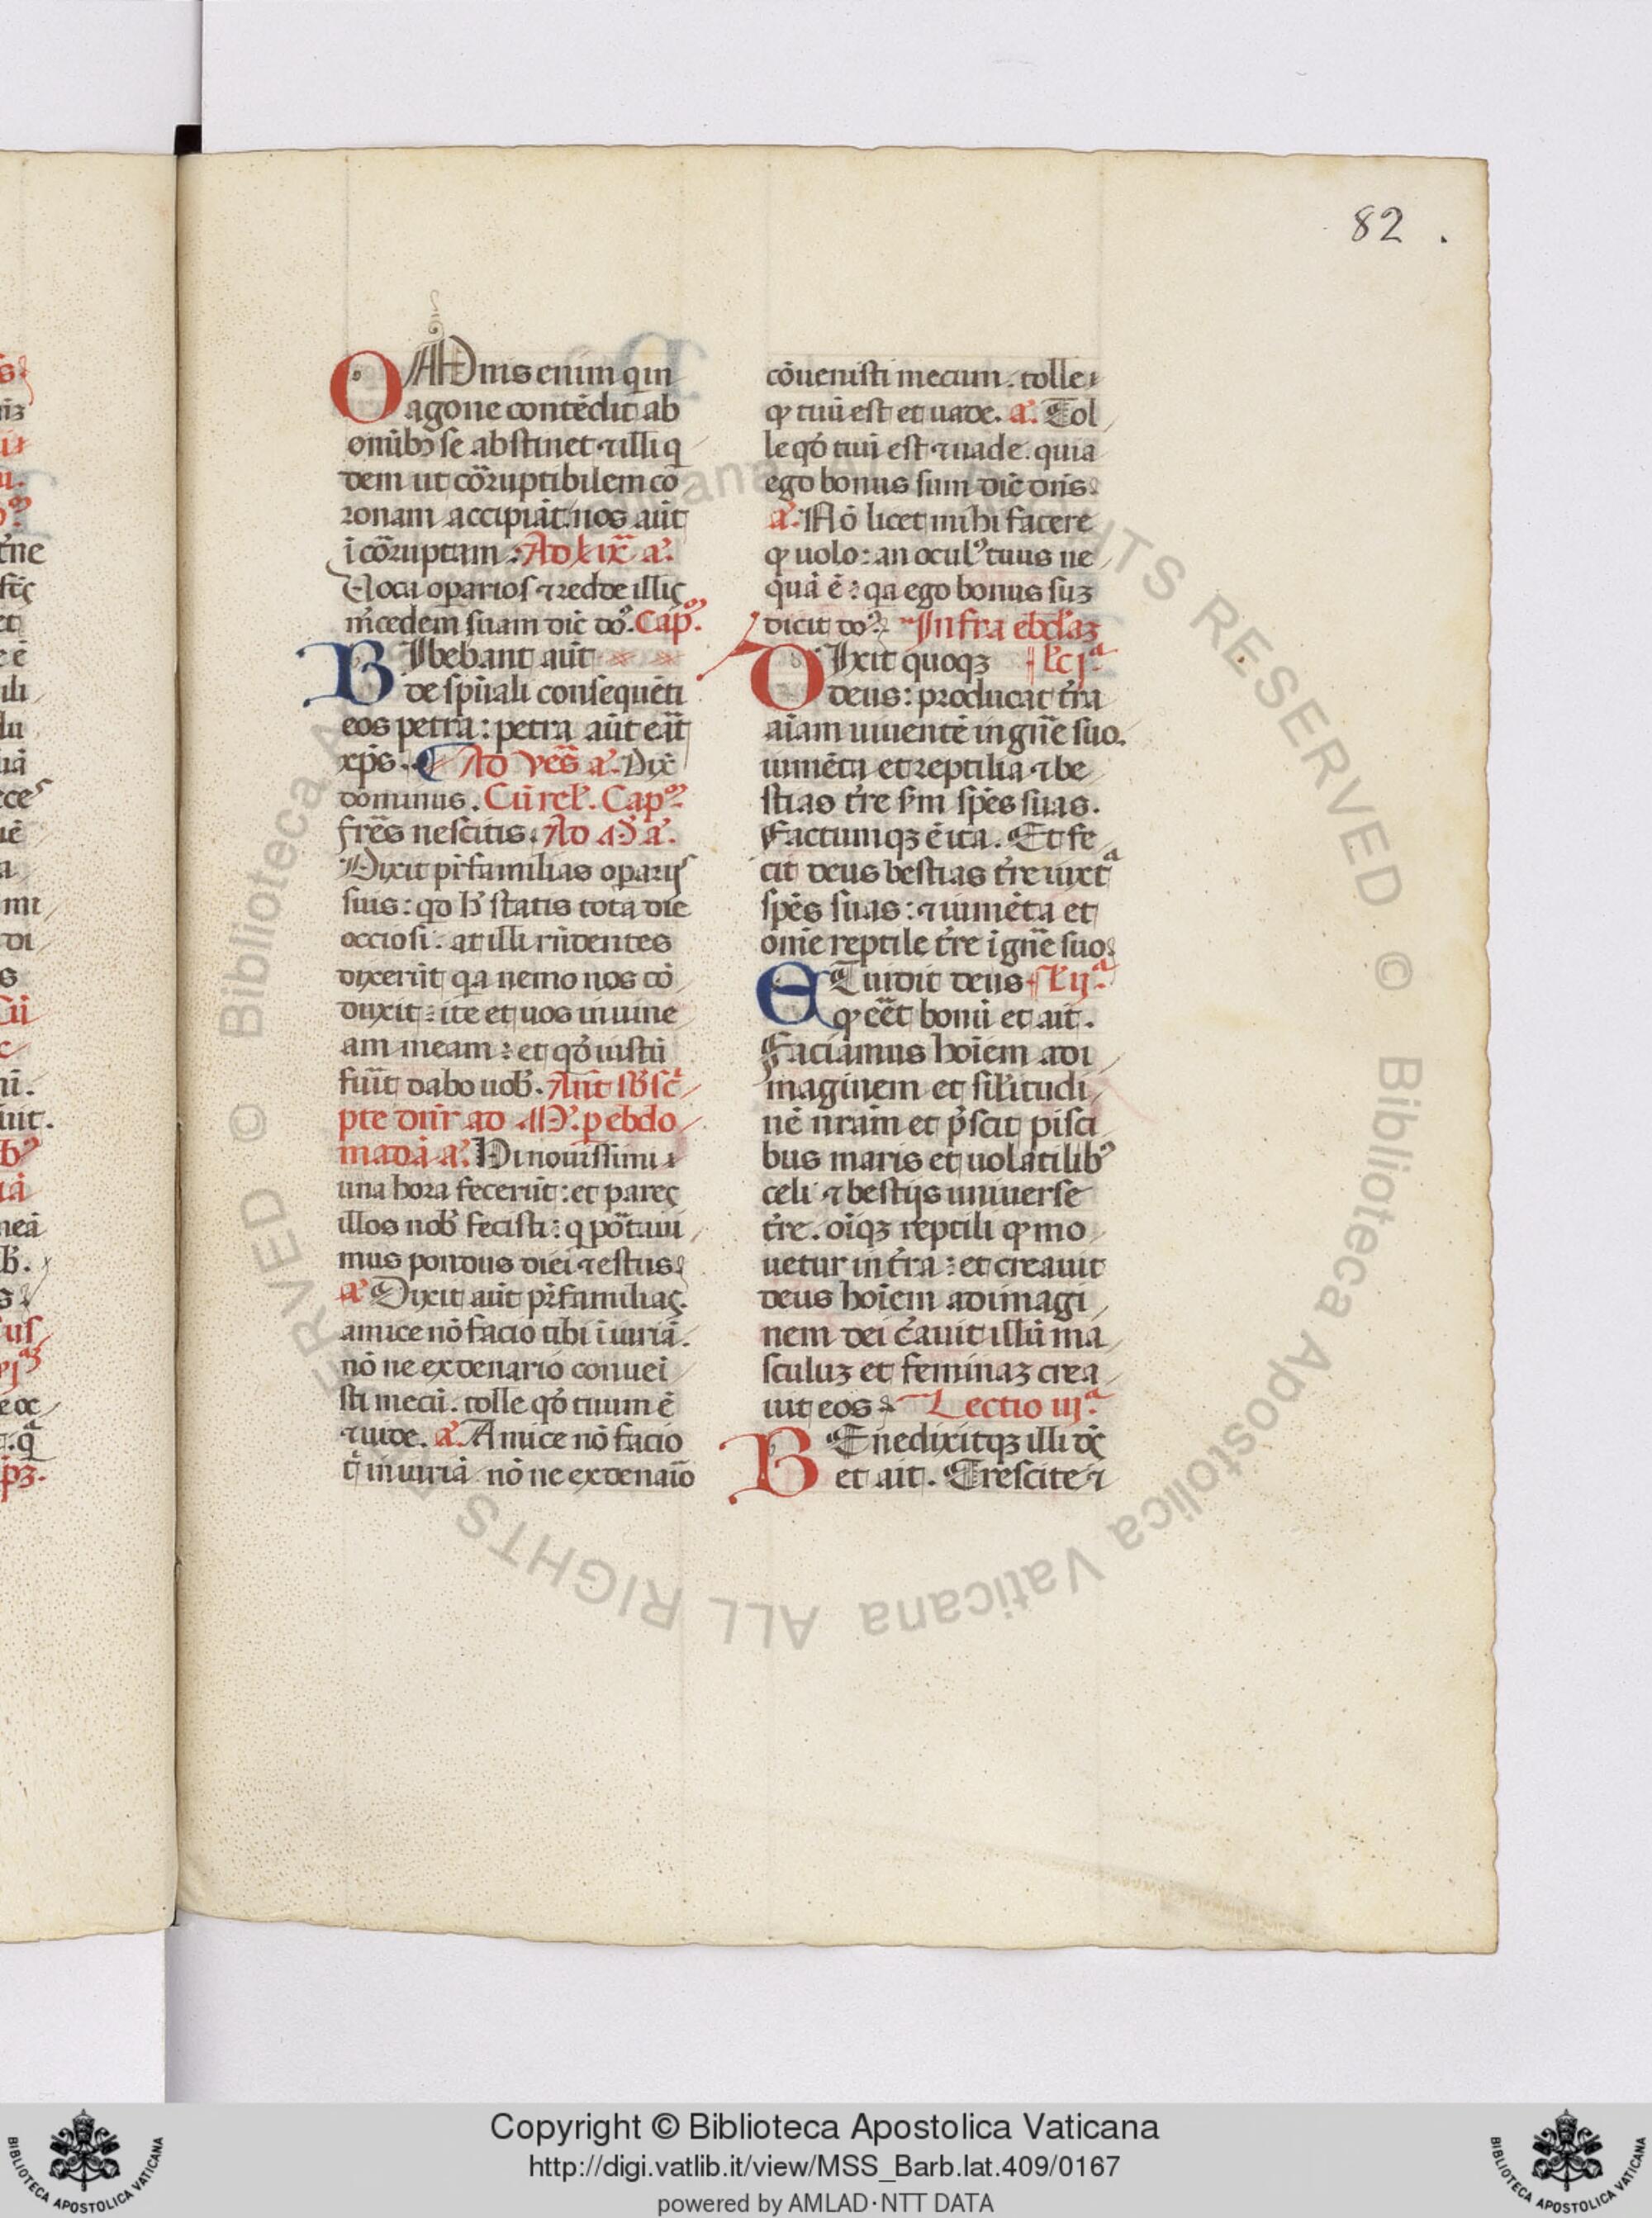 82
OMnis enim qui in
agone contẽdit ab
omĩbꝫ se abstinet ⁊ illi q
dem ut coꝝruptibilem co
ronam accipiãt: nos aũt
ĩcoꝝruptam. Ad ixͣ a.
Uoca operarios ⁊ redde illis
m̃cedem suam dic̃ do. Cap.
BIbebant aũt
de spũali consequẽti
eos petra: petra aũt erãt
xp̃s. Ad ves̃ a. Dix̃
dominus. Cũ rel̃. Cap.
fres̃ nescitis. Ad M̃ a.
Dixit pr̃familias operarijs
suis: qd h̃ statis tota die
occiosi. at illi rñdentes
dixerũt qa nemo nos cõ
duxit: ite et uos in uine
am meam: et qd̃ iustũ
fũit dabo uob̃. Ant̃ sb̃sc̃
pte dñr ad M̃. p ebdo
madã a. Hi nouissimi
una hora fecerũt: et pares
illos nob̃ fecisti: q portaui
mus pondus diei ⁊ estus.
a. Dixit aũt pr̃familias.
amice nõ facio tibi ĩiuriã.
nõ ne ex denario conuei
sti mecũ. tolle qd̃ tuum ẽ
⁊ uade. a. Amice nõ facio
t̃ iniuriã nõ ne ex denaĩo
cõuenisti mecum. tolle
qᷣ tuũ est et uade. a. Tol
le qd̃ tuũ est ⁊ uade. quia
ego bonus sum dic̃ dñs.
a. Nõ licet mihi facere
qᷣ uolo: an oculꝰ tuus ne
quã ẽ: qa ego bonus suꝫ
dicit do. Infra ebd̃aꝫ
DIxit quoqꝫ lc̃ jª.
deus: producat t̃ra
aĩam uiuentẽ in gñe suo.
iumẽta et reptilia ⁊ be
stias t̃re sm̃ spẽs suas.
Factumqꝫ ẽ ita. Et fe
cit deus bestias t̃re iuxtª
spẽs suas: ⁊ iumẽta et
om̃e reptile t̃re ĩ gñe suo.
ET uidit deus l̃ ijª.
qᷣ eẽt bonũ et ait.
Faciamus hoĩem adi
maginem et sil̃itudi
nẽ nr̃am et p̃sit pisci
bus maris et uolatilibꝰ
celi ⁊ bestijs uniuerse
t̃re. oĩqꝫ reptili qᷣ mo
uetur in t̃ra: et creauit
deus hoĩem ad imagi
nem dei c̃auit illũ ma
sculuꝫ et feminaꝫ crea
uit eos. Lectio iijª.
BEnedixitqꝫ illi ds̃
et ait. Crescite ⁊
Copyright © Biblioteca Apostolica Vaticana
http://digi.vatlib.it/view/MSS_Barb.lat.409/0167
powered by AMLAD·NTT DATA